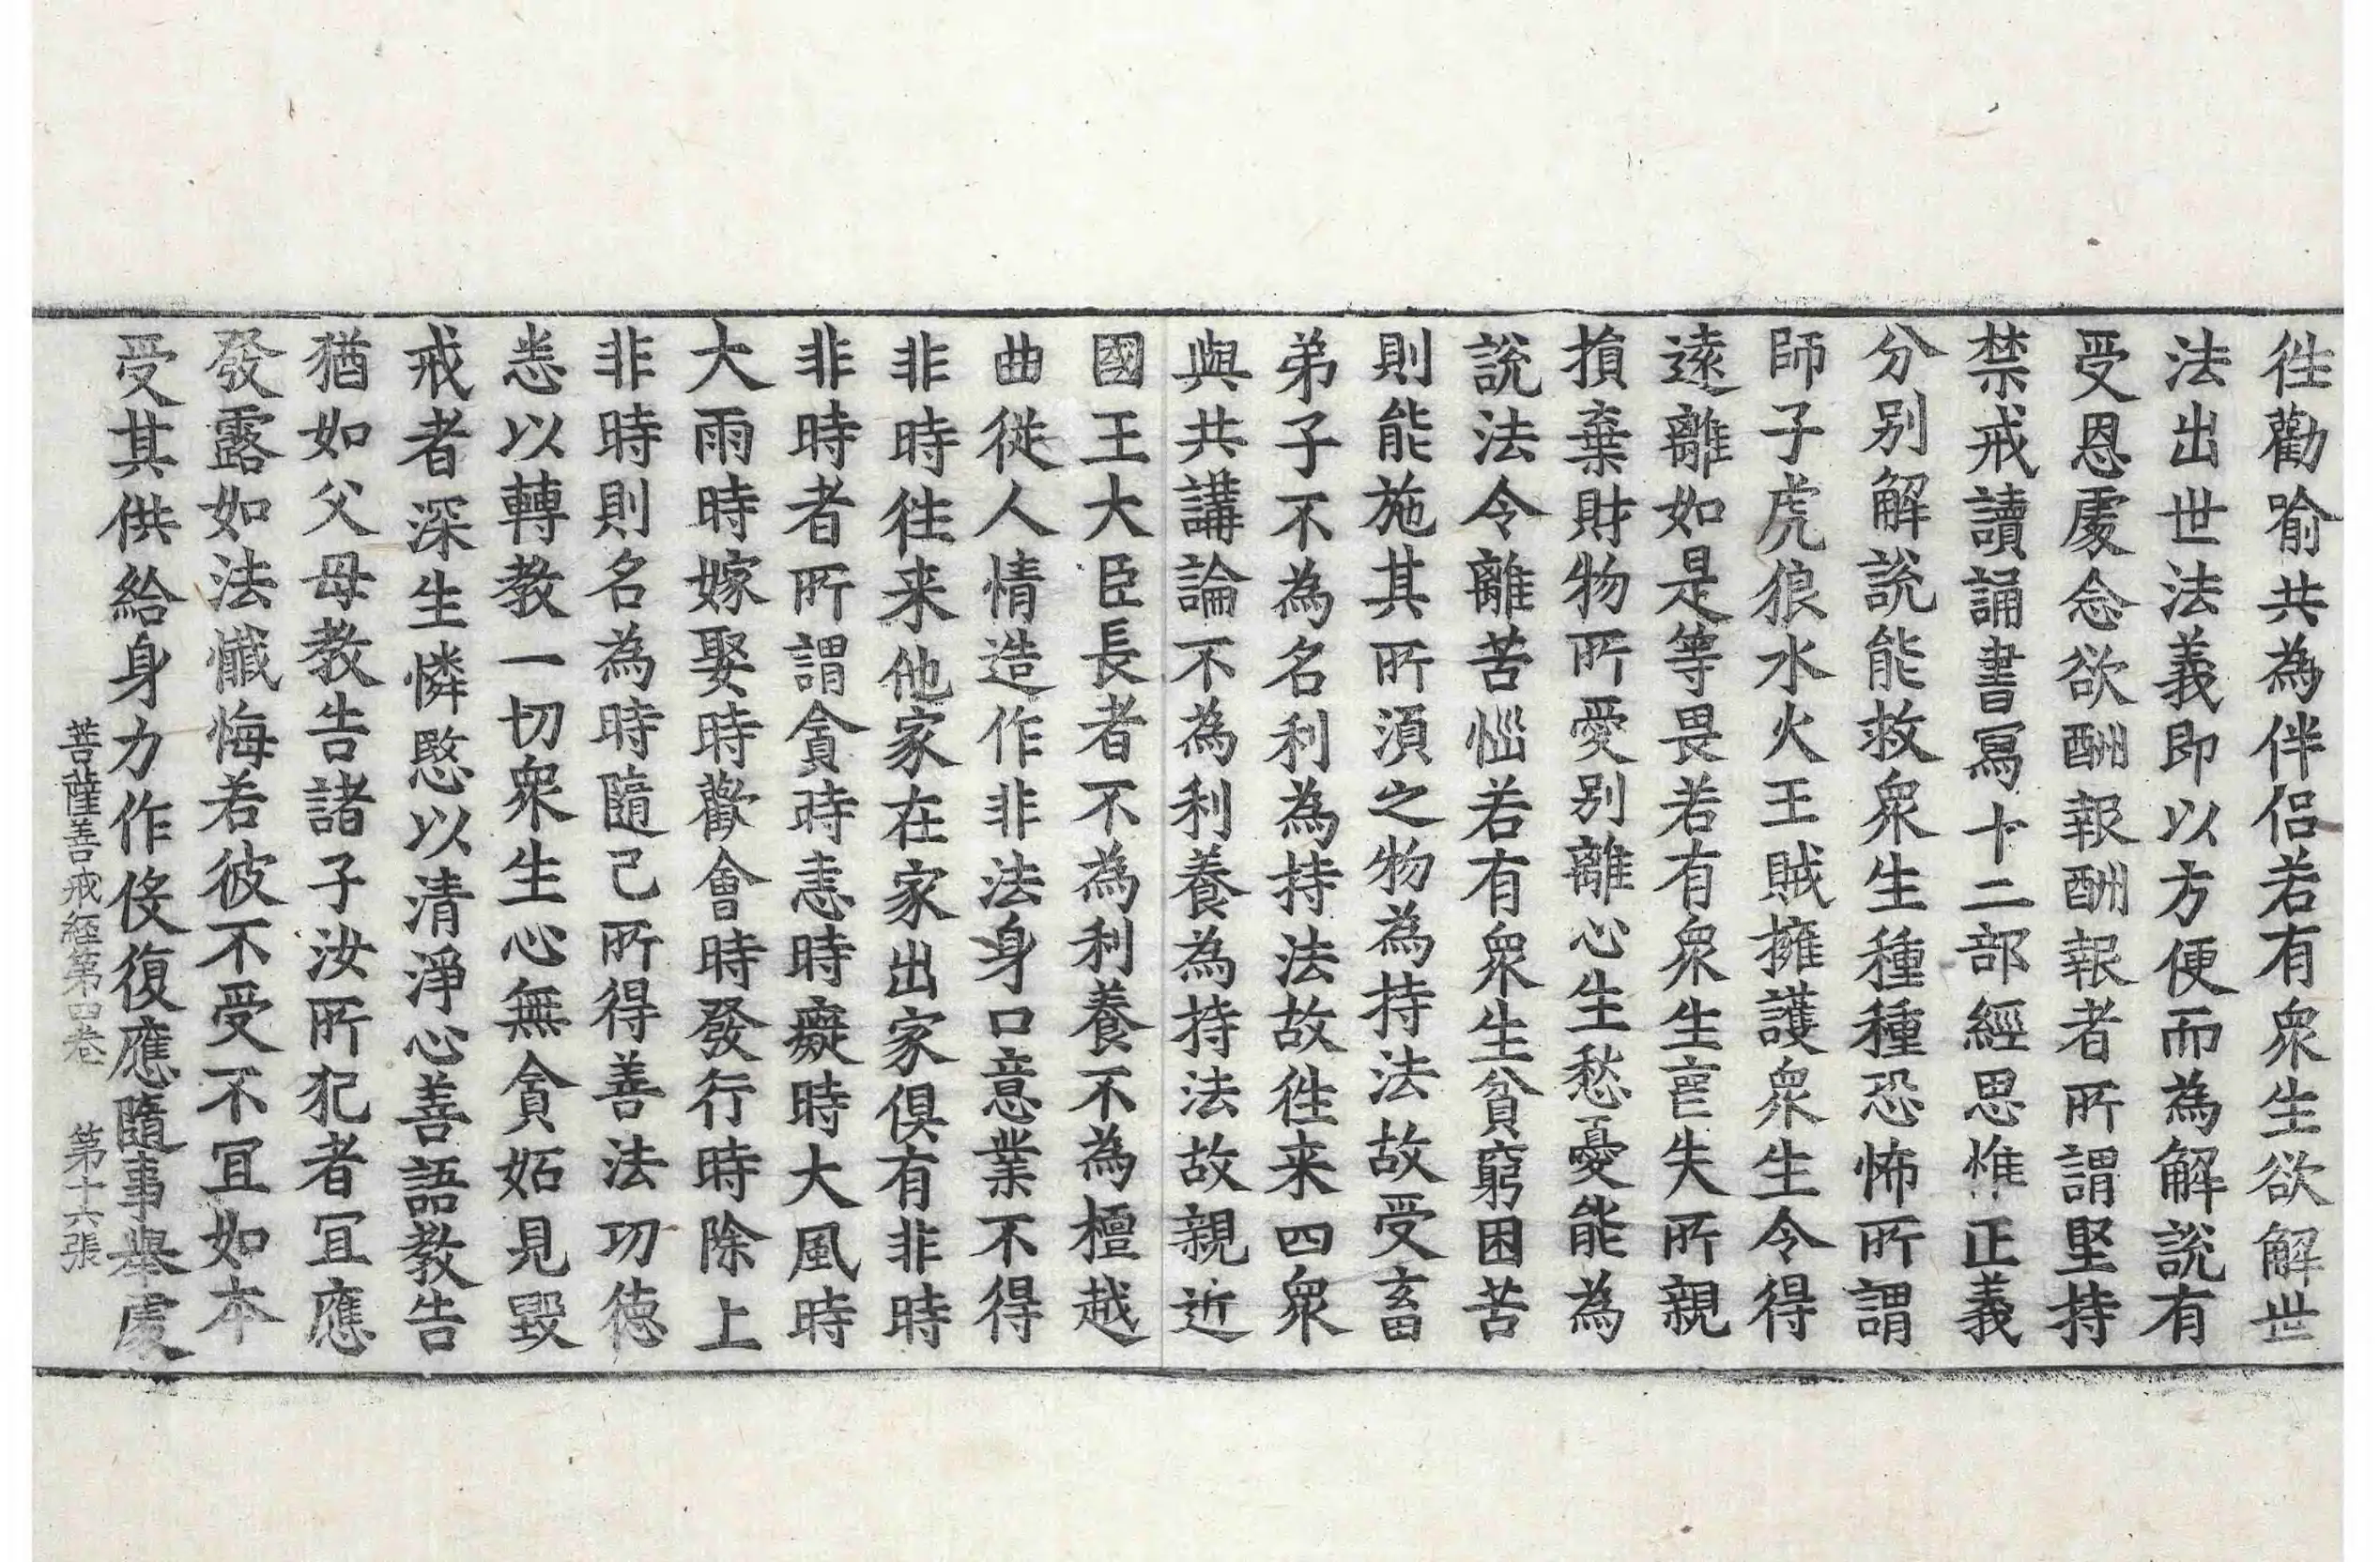 徃勸喻共為伴侶若有衆生欲解世
法出世法義即以方便而為解說有
受恩處念欲酬報酬報者所謂堅持
禁戒讀誦書寫十二部經思惟正義
分別解說能救衆生種種恐怖所謂
師子虎狼水火王賊擁護衆生令得
遠離如是等畏若有衆生亡失所親
損棄財物所愛別離心生愁憂能為
說法令離苦惱若有衆生貧窮困苦
則能施其所須之物為持法故受畜
弟子不為名利為持法故徃来四衆
與共講論不為利養為持法故親近
國王大臣長者不為利養不為檀越
曲從人情造作非法身口意業不得
非時徃来他家在家出家俱有非時
非時者所謂貪時恚時癡時大風時
大雨時嫁娶時歡會時發行時除上
非時則名為時隨己所得善法功德
悉以轉教一切衆生心無貪妬見毀
戒者深生憐愍以清淨心善語教告
猶如父母教告諸子汝所犯者冝應
發露如法懺悔若彼不受不冝如本
受其供給身力作役復應隨事舉處
菩薩善戒經第四卷 第十六張